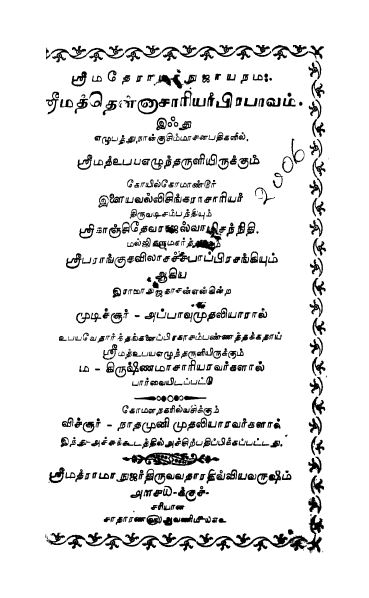 ஸ்ரீமதேராமாநுஜாயநம:.
ஸ்ரீமத்தென்னாசாரியர்பிரபாவம்.
இஃது
எழுபத்துநான்குசிம்மாசனபதிகளில்,
ஸ்ரீமத்உபயஎழுந்தருளியிருக்கும்
கோயில்கோமாண்டூர்
இளையவல்லிசிங்கராசாரியர்
திருவடிசம்பந்தியும்
ஸ்ரீகாஞ்சிதேவராஜஸ்வாமிசந்நிதி.
ஸ்ரீபராங்குசவிலாசச்சபாப்பிரசங்கியும்
ஆகிய
இராமாநுஜதாசன்என்கின்ற
முடிச்சூர் - அப்பாவுமுதலியாரால்
உபயவேதார்த்தங்களைப்பிரகாசம்பண்ணத்தக்கதாய்
ஸ்ரீமத்உபயஎழுந்தருளியிருக்கும்
ம - கிருஷ்ணமாசாரியரவர்களால்
பார்வையிடப்பட்டு
கோமளநகரில்வசிக்கும்
விச்சூர் - நாதமுனி முதலியாரவர்களால்
இந்து-அச்சுக்கூடத்தில்அச்சிற்பதிப்பிக்கப்பட்டது.
ஸ்ரீமத்ராமாநுஜர்திருவவதாரதிவ்வியவருஷம்
சரியான
சாதாரண ஆவணி